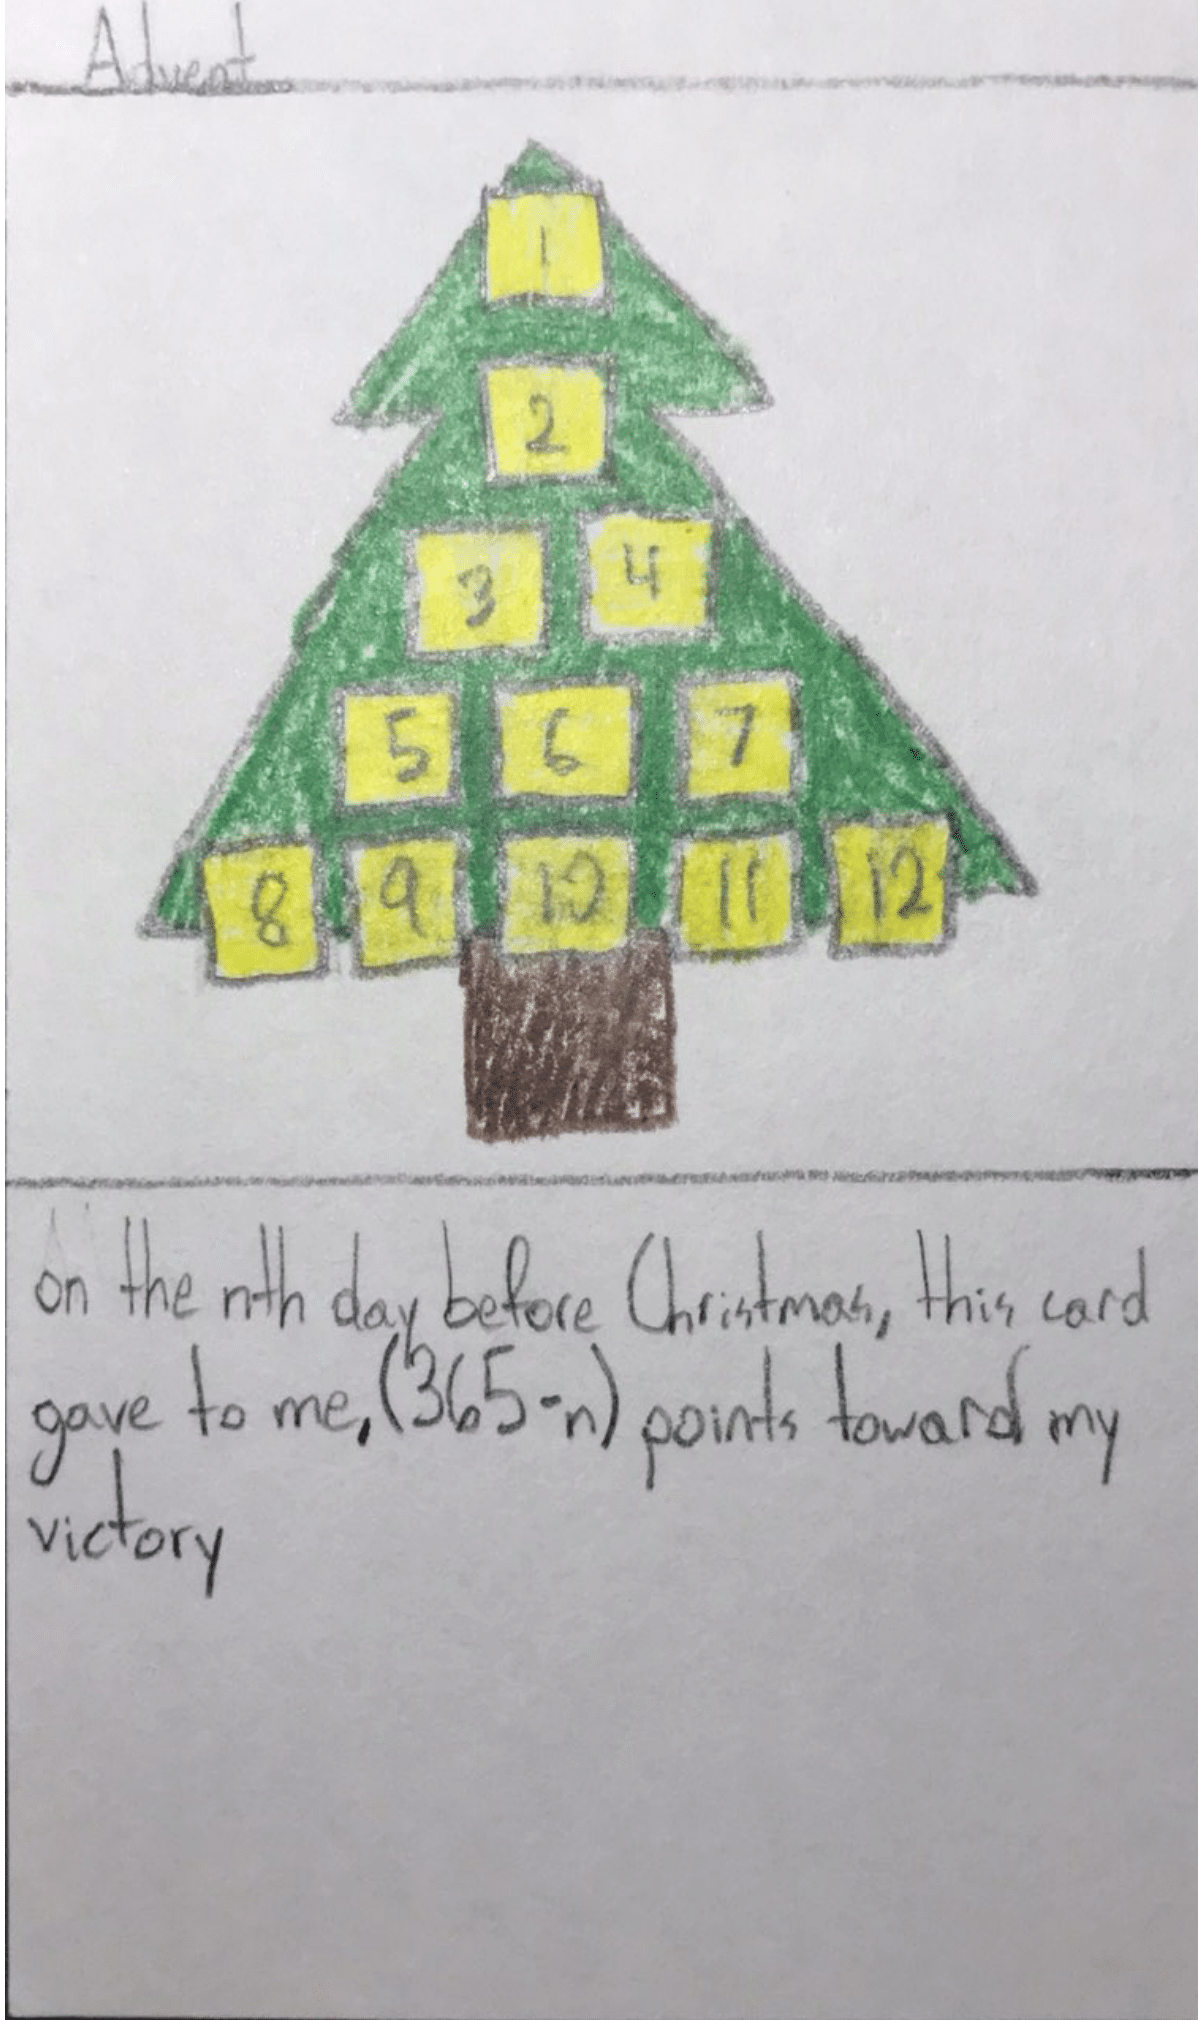 Advent
1
2
3 4
5 6 7
8 9 10 11 12
on the nth day before Christmas, this card
gave to me, (365-n) points toward my
victory